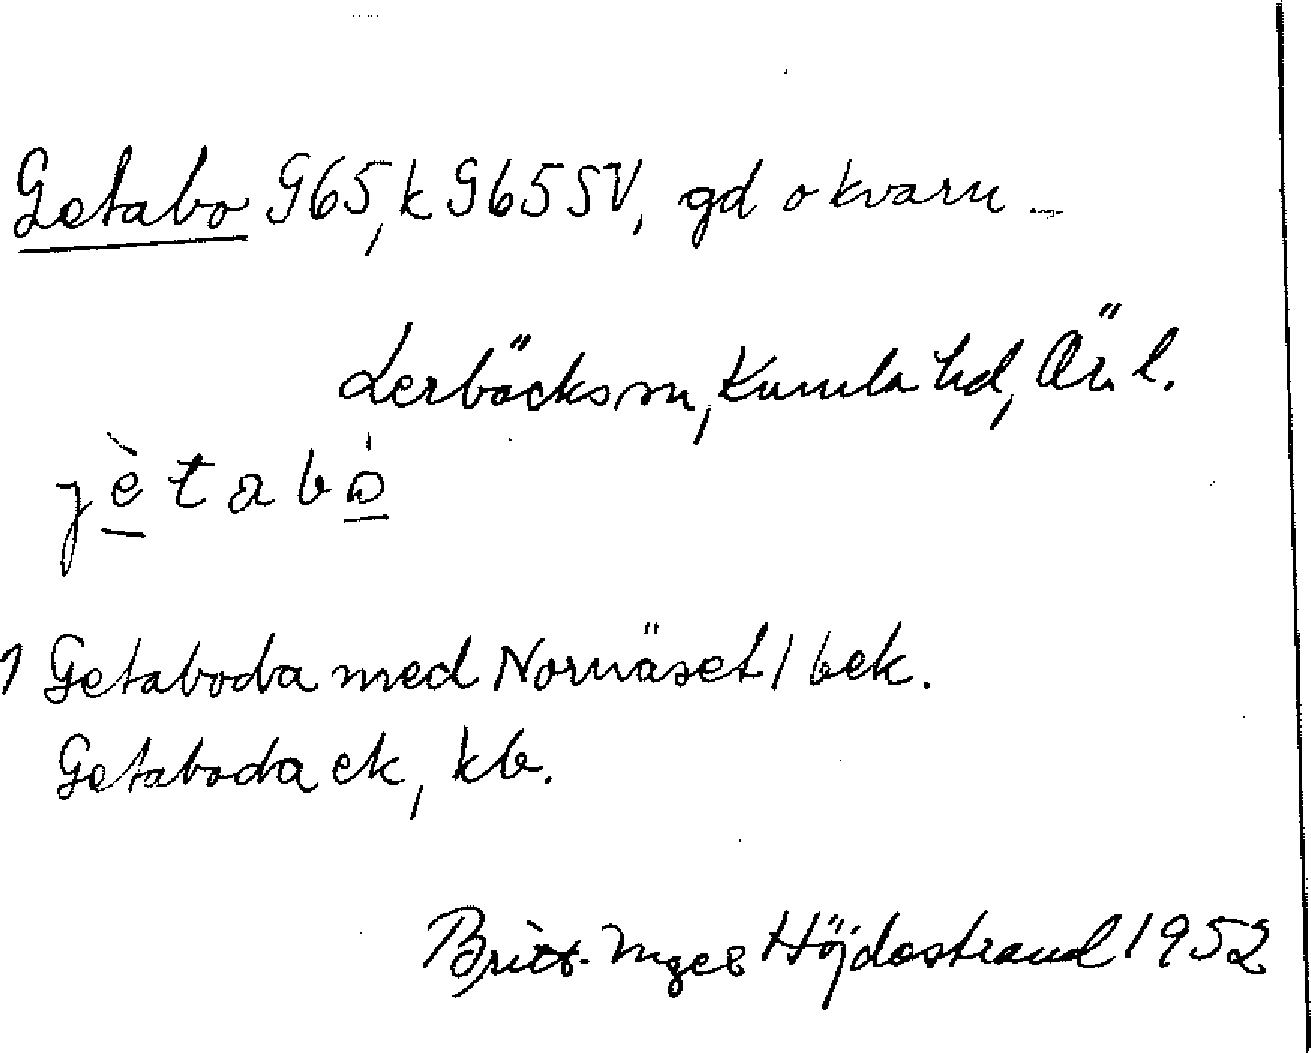 Getabo G65, k G65 SV, gd o kvarn –
Lerbäcks sn, Kumla hd, Ör. l.
jètabò
1 Getaboda med Nornäset / bek.
Getaboda ek, kb.
Britt-Inger Höjdestrand 1952